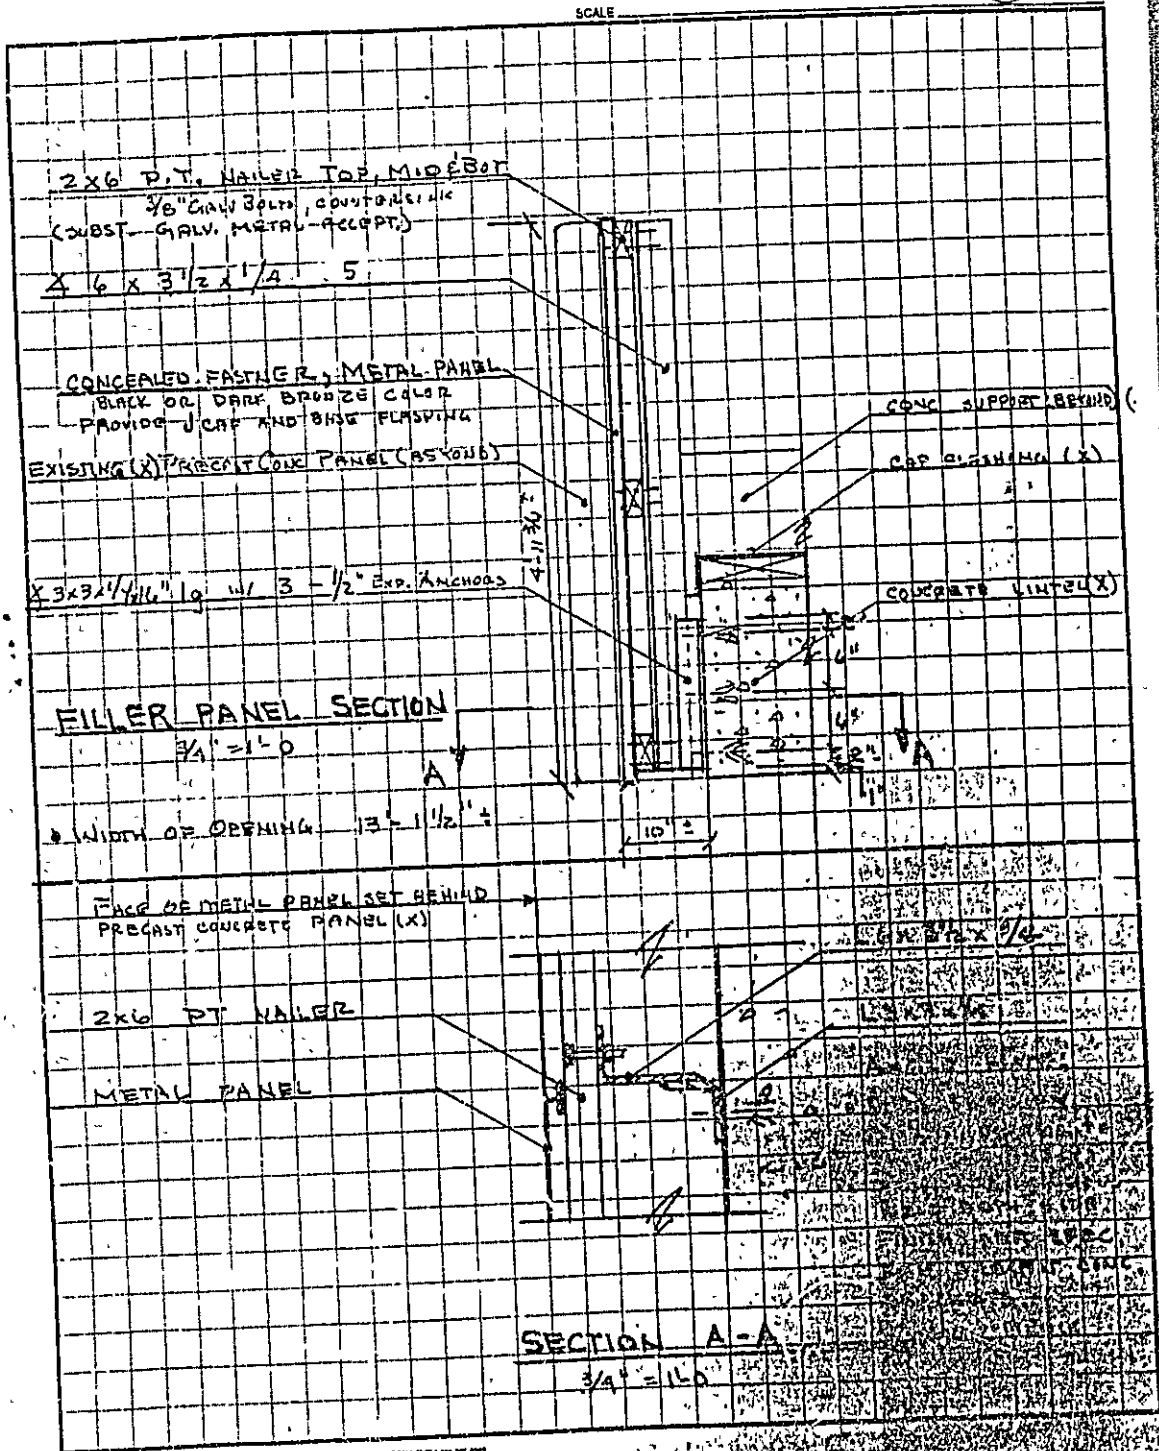 SCALE
2X6 P.T. NAILER TOP, MID & BOT
3/8" GALV BOLTS, COUNTERSINK
(SUBST GALV. METAL ACCEPT.)
6 X 3 1/2 X 1/4 5
CONCEALED FASTNER, METAL PANEL
BLACK OR DARK BRONZE COLOR
PROVIDE J CAP AND BASE FLASHING
EXISTING (X) PRECAST CONC PANEL (BEYOND)
CONC SUPPORT (BEYOND) (
CAP FLASHING (X)
3x3x1/4x16" lg w/ 3 - 1/2" EXP. ANCHORS
CONCRETE LINTEL (X)
6"
6"
FILLER PANEL SECTION
3/4" = 1'-0
A
A
1"
• WIDTH OF OPENING 13'-1 1/2" ±
10" ±
FACE OF METAL PANEL SET BEHIND
PRECAST CONCRETE PANEL (X)
2x6 PT NAILER
METAL PANEL
SPEC
CONC
SECTION A-A
3/4" = 1'-0